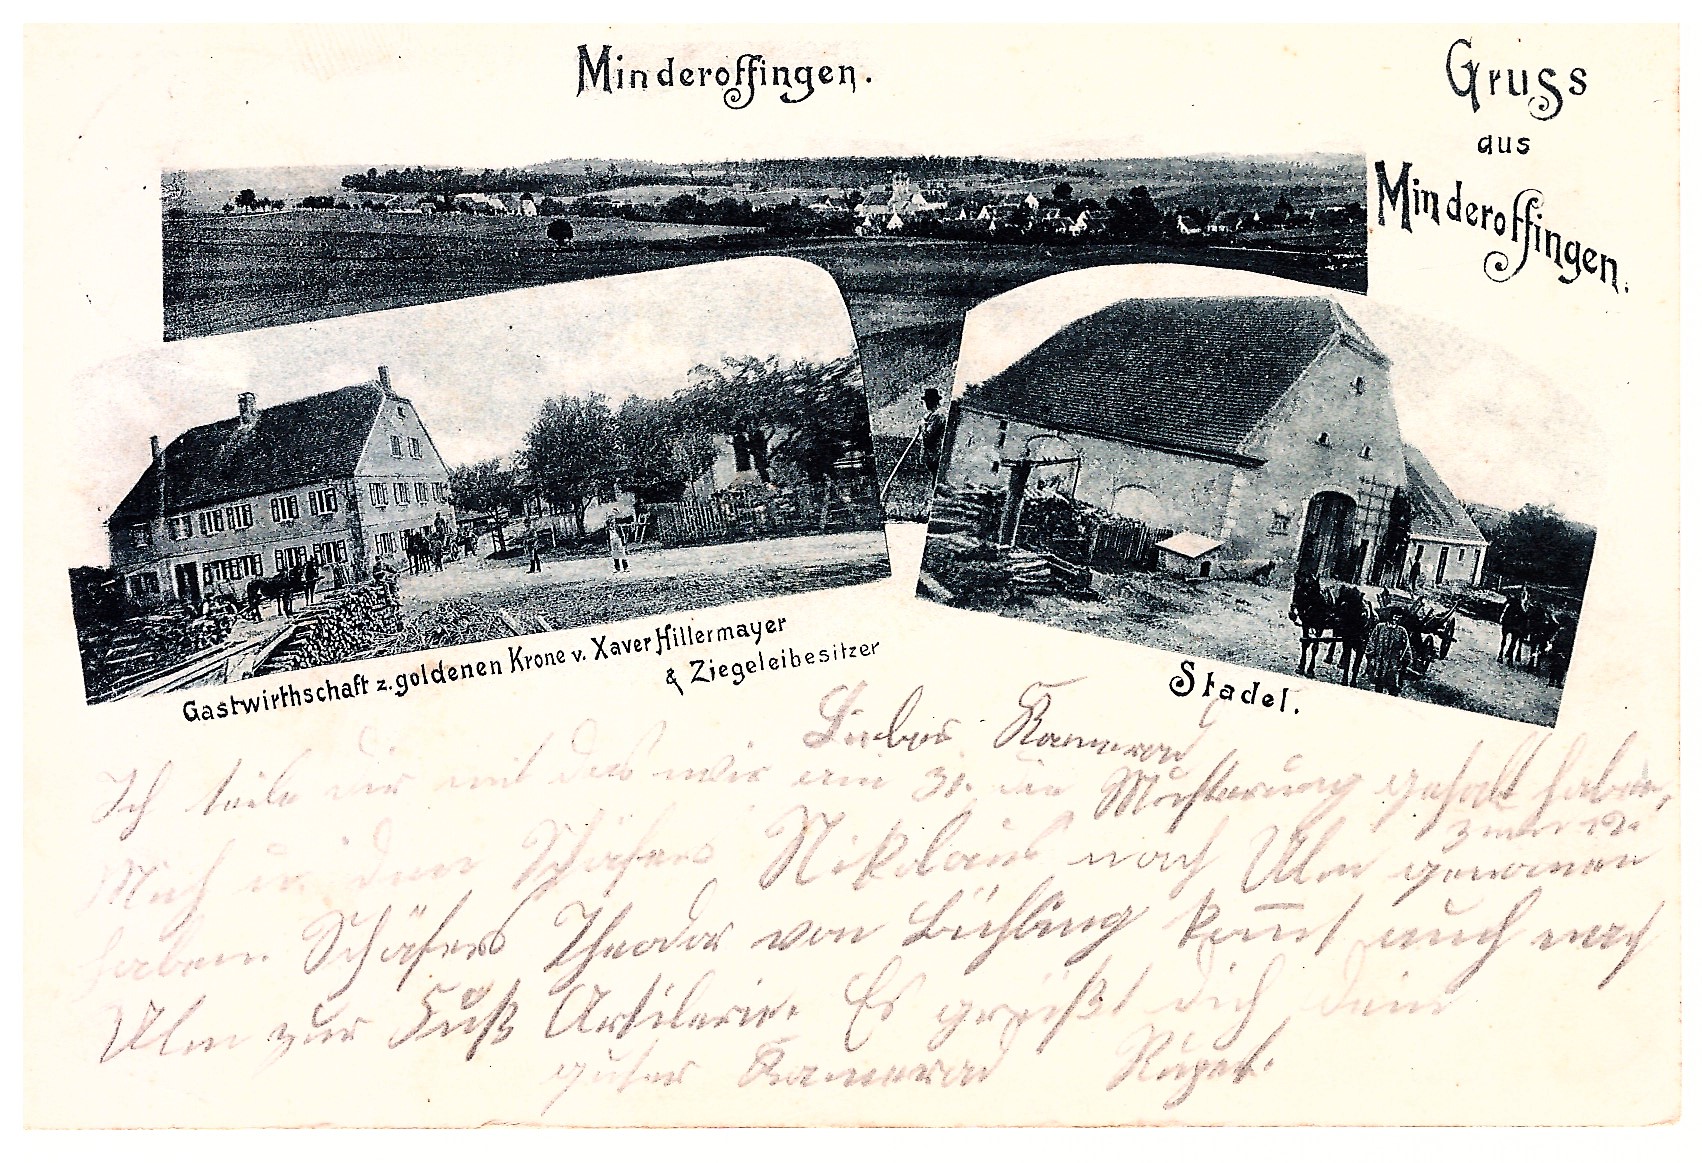 Minderoffingen.
Gruss
aus
Minderoffingen.
Gastwirthschaft z. goldenen Krone v. Xaver Hillermayer
& Ziegeleibesitzer
Stadel.
Liebes Kamerad
Ich teile dir mit das wir am 31. die Musterung gehabt haben,
Mich u. den Schäfers Nikolaus nach Ulm genomen
haben. Schäfers Theodor von Bühling komt auch nach
Ulm zur Fuß Artilerie. Es grüßt dich dein
guter Kamerad